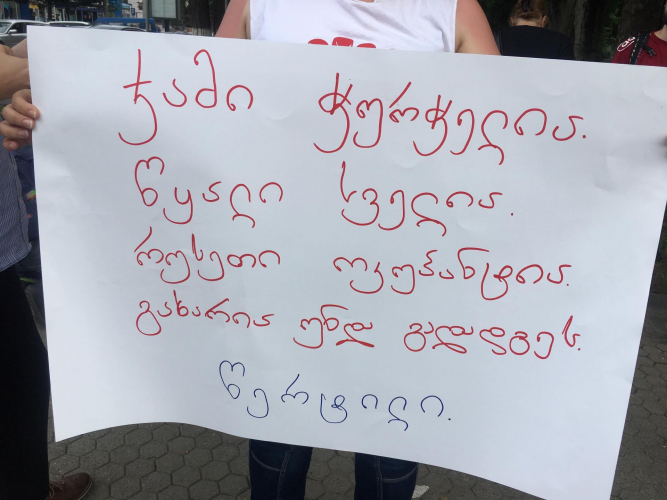 ჯამი ჭურჭელია.
წყალი სველია.
რუსეთი ოკუპანტია.
გახარია უნდა გადადგეს.
წერტილი.